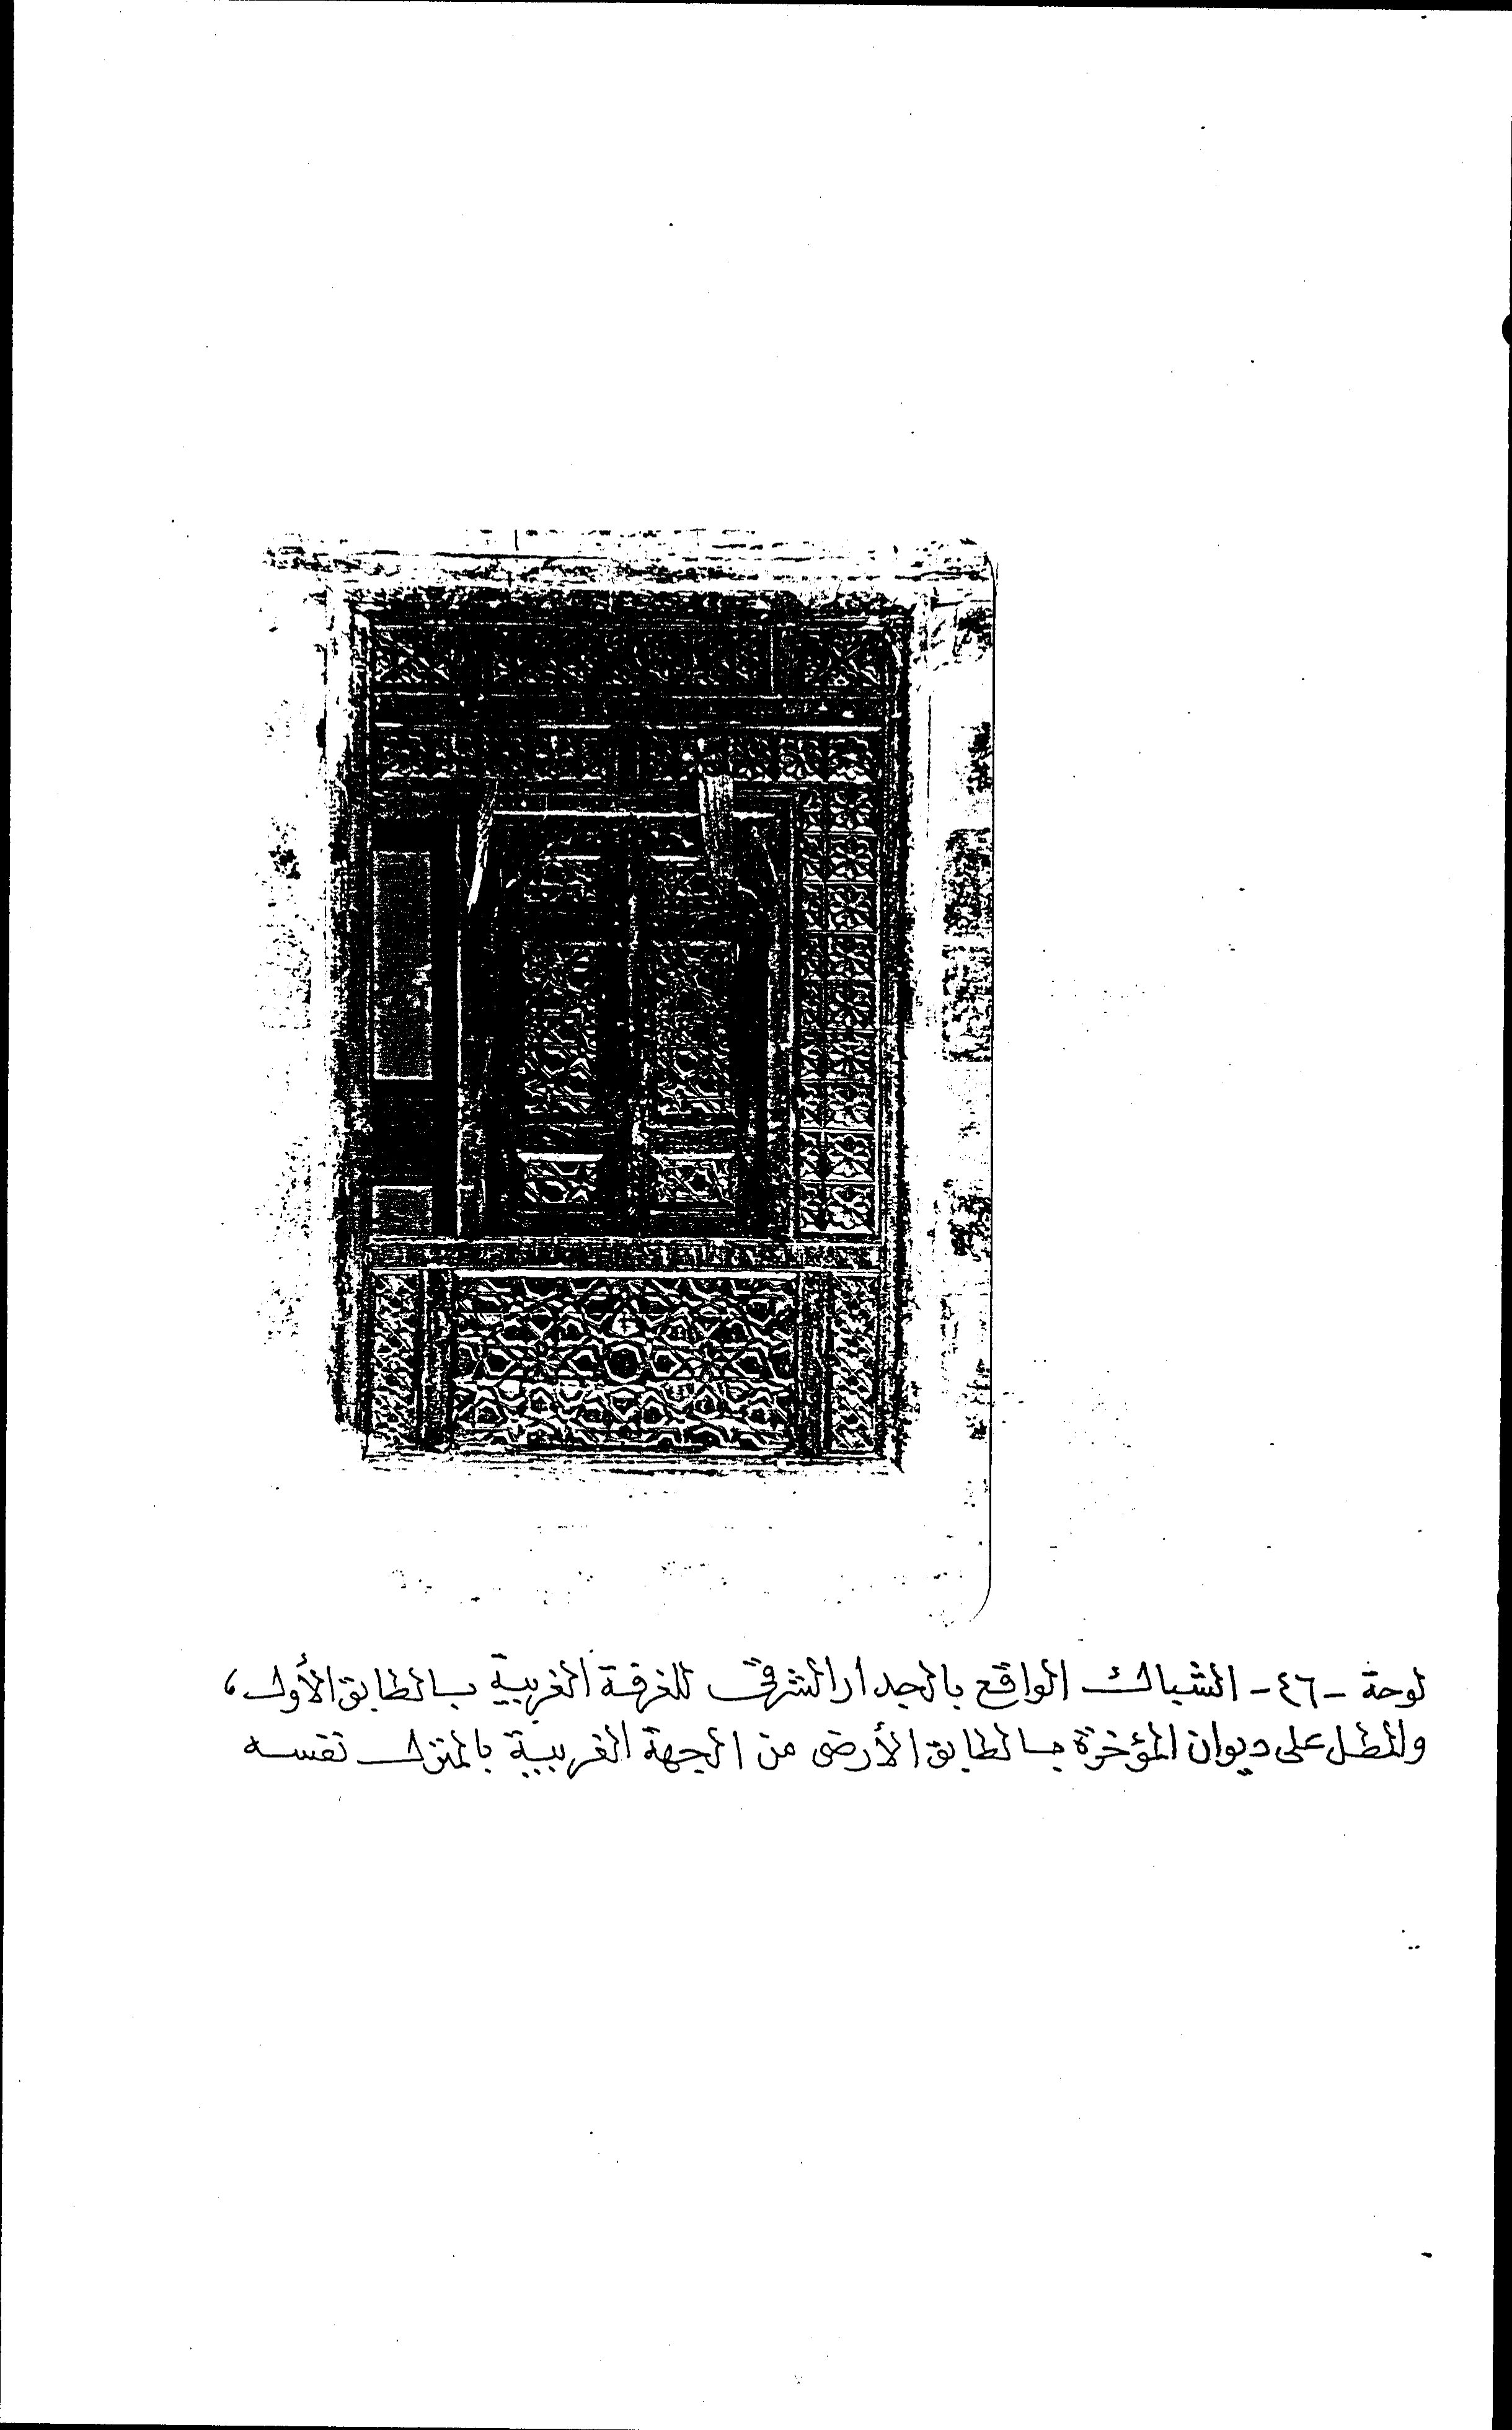 لوحة -٤٦- الشباك الواقع بالجدار الشرقى للغرفة الغربية بالطابق الأول،
والمطل على ديوان المؤخرة بالطابق الأرضى من الجهة الغربية بالمنزل نفسه